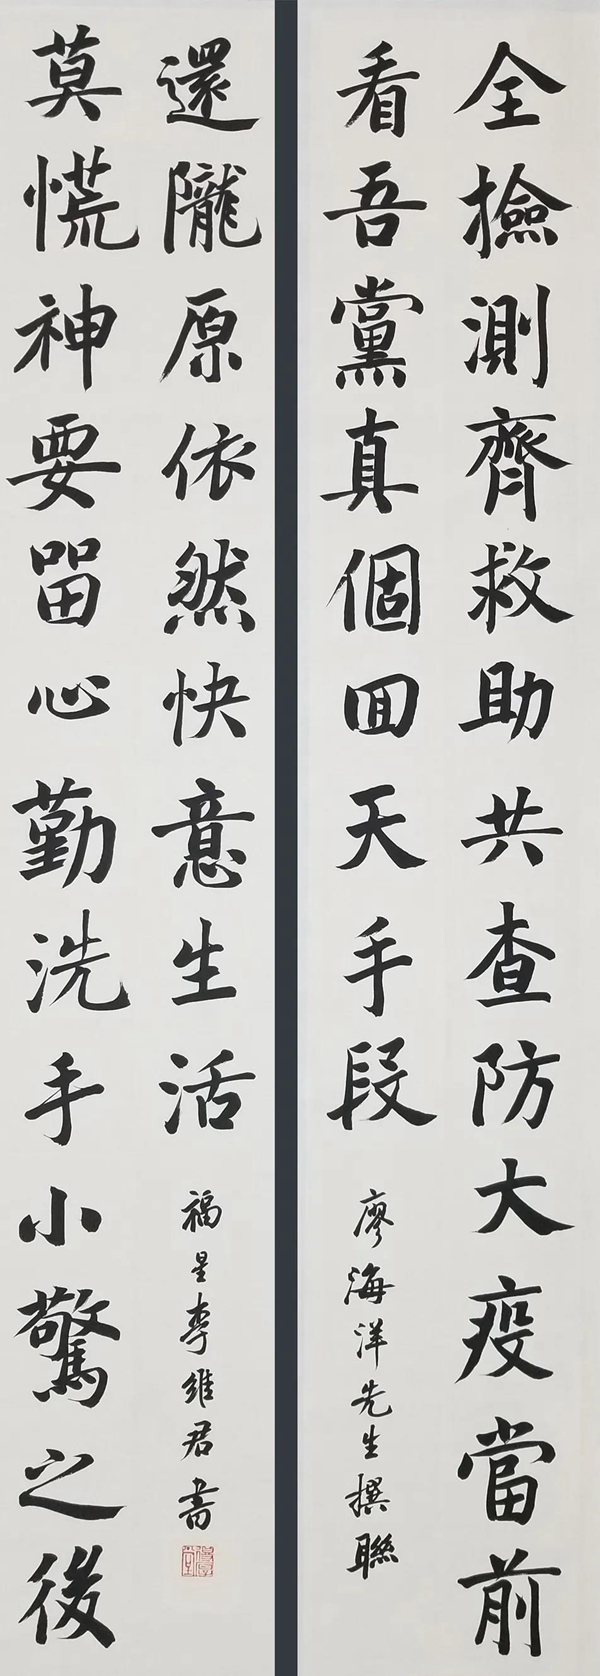 全撿測齊救助共查防大疫當前
看吾黨真個囬天手段
廖海洋先生撰聯
莫慌神要㽞心勤洗手小驚之後
還隴原依然快意生活
福星李維君書